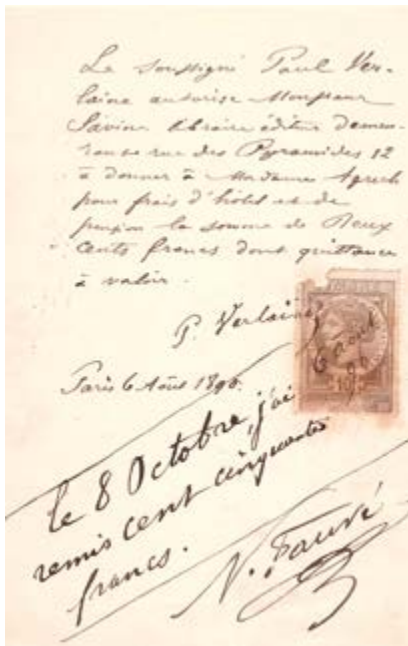 Le soussigné Paul Ver-
laine autorise Monsieur
Savine libraire éditeur demeu-
rant rue des Pyramides 12
à donner à Madame
pour frais d'hôtel et de
pension la somme de Deux
cents francs dont quittance
à valoir.
P. Verlaine
6 août
90
10
Paris 6 Août 1890.
le 8 Octobre, j'ai
remis cent cinquante
francs.
N. Fauré